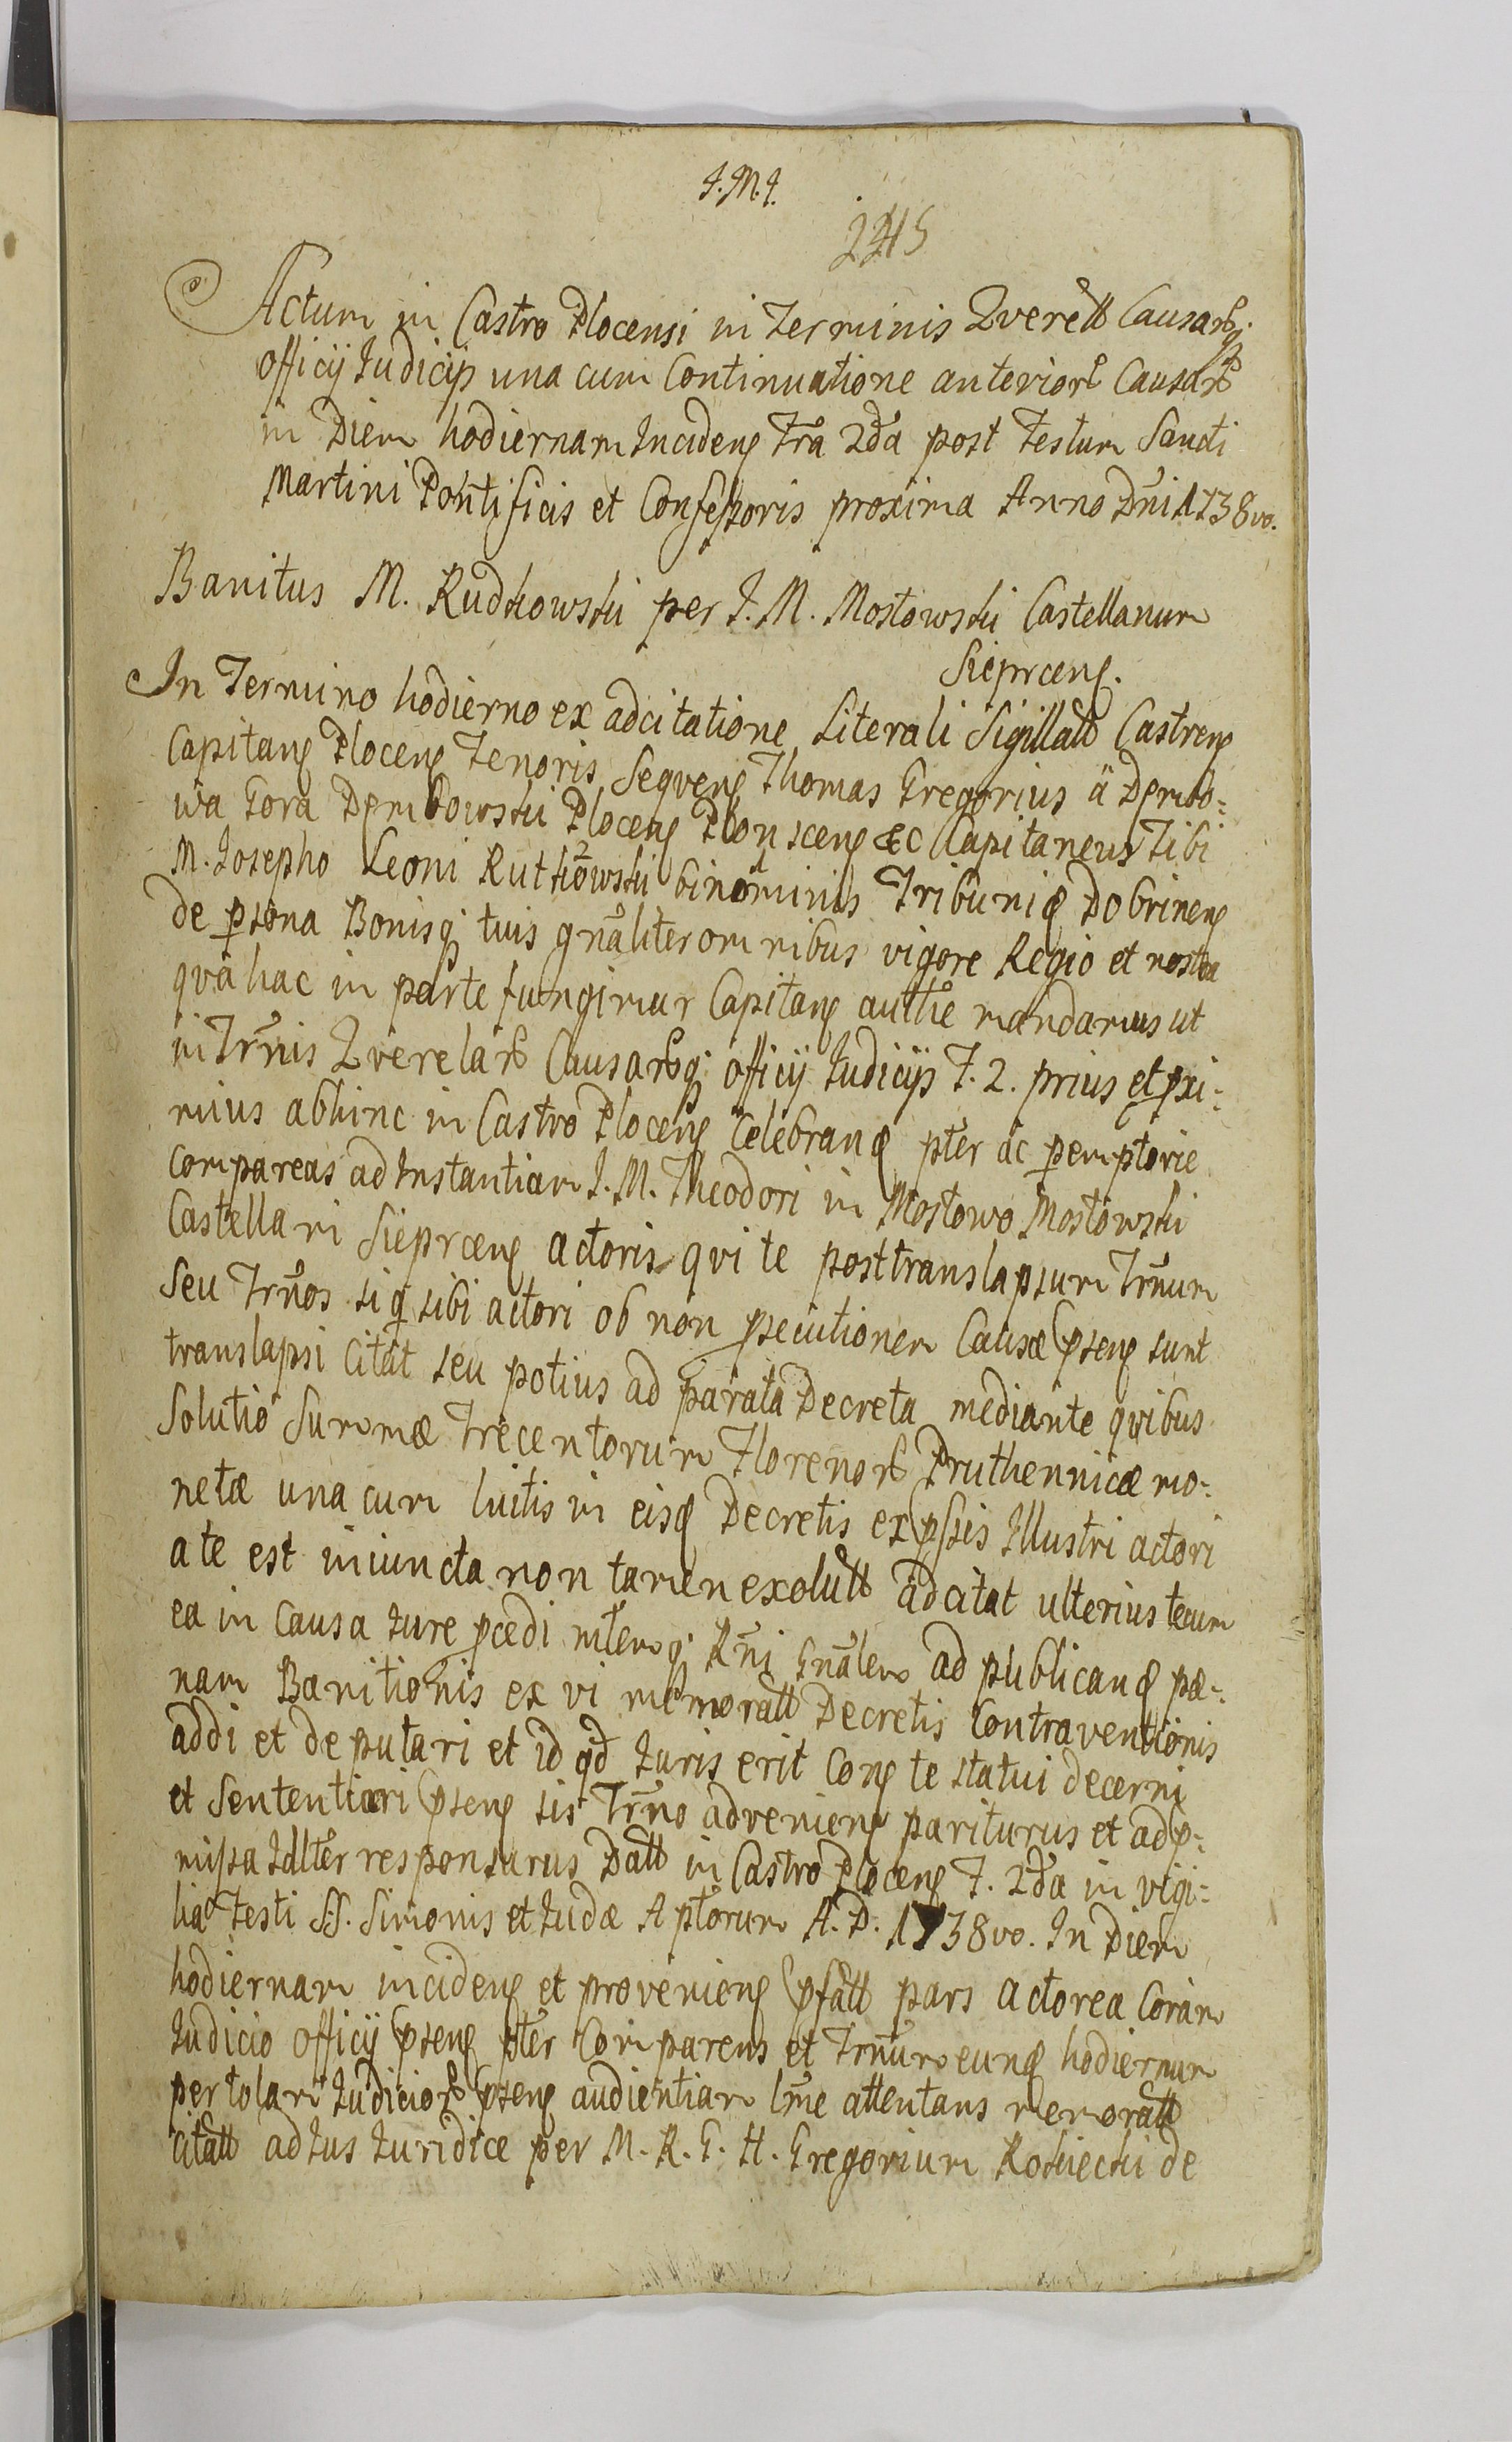 J.M.J.
2215
Actum in Castro Plocensi in Terminis Qverell Causarq
officÿ Judicÿs una cum Continuatione anterior Causar
in Diem hodiernam Incideng Fra 2da post Festum Sancti
Martini Pontificis et Confessoris proxima Anno Dni 1738vo.
Banitus M. Rudkowski per J. M. Mostowski Castellanum
Sieprceng.
In Termino hodierno ex adcitatione Literali Sigillatt Castreng
Capitang Ploceng Tenoris Seqveng Thomas Gregorius â Dembo=
wa Gora Dembowski Ploceng Plonsceng &c Capitaneus Tibi
M. Josepho Leoni Rutkowski binominis Tribunid Dobrineng
de psona Bonisq tuis gnaliter omnibus vigore Regio et nostra
qvâ hac in parte fungimur Capitang autthe mandamus ut
in Trnis Qverelar Causarq officÿ Judicÿs F. 2. prius et pxi=
mius abhinc in Castro Ploceng Celebrand pter ac pemptorie
compareas ad Instantiam J. M. Theodori in Mostowo Mostowski
Castellani Sieprceng actoris qvi te post translapsum Trnum
seu Trnos siq sibi actori ob non psecutionem Causæ pseng sunt
translapsi Citat seu potius ad parata Decreta mediante qvibus
Solutio Summæ Trecentorum Florenor Pruthennicæ mo=
netæ una cum luitis in eisd Decretis expssis Illustri actori
a te est iniuncta non tamen exolutt adcitat ulterius tecum
ea in Causa Jure pcedi mtemq Rni Gnalem ad publicand pæ=
nam Banitionis ex vi memoratt Decretis Contraventionis
addi et deputari et id qd Juris erit Cong te statui decerni
et Sententiari pseng sis Trno advenieng pariturus et adp=
missa Jdlter responsurus Datt in Castro Ploceng F. 2da in vigi=
lia Festi S.S. Simonis et Judæ Aptorum A. D. 1738vo. In Diem
hodiernam incideng et provenieng pfatt pars actorea Coram
Judicio officÿ pseng pter Comparens et Trnum eund hodiernum
per tolam Judicior pseng audientiam lme attentans memoratt
citatt ad Jus Juridice per M. R. G. H. Gregorium Rokicki de